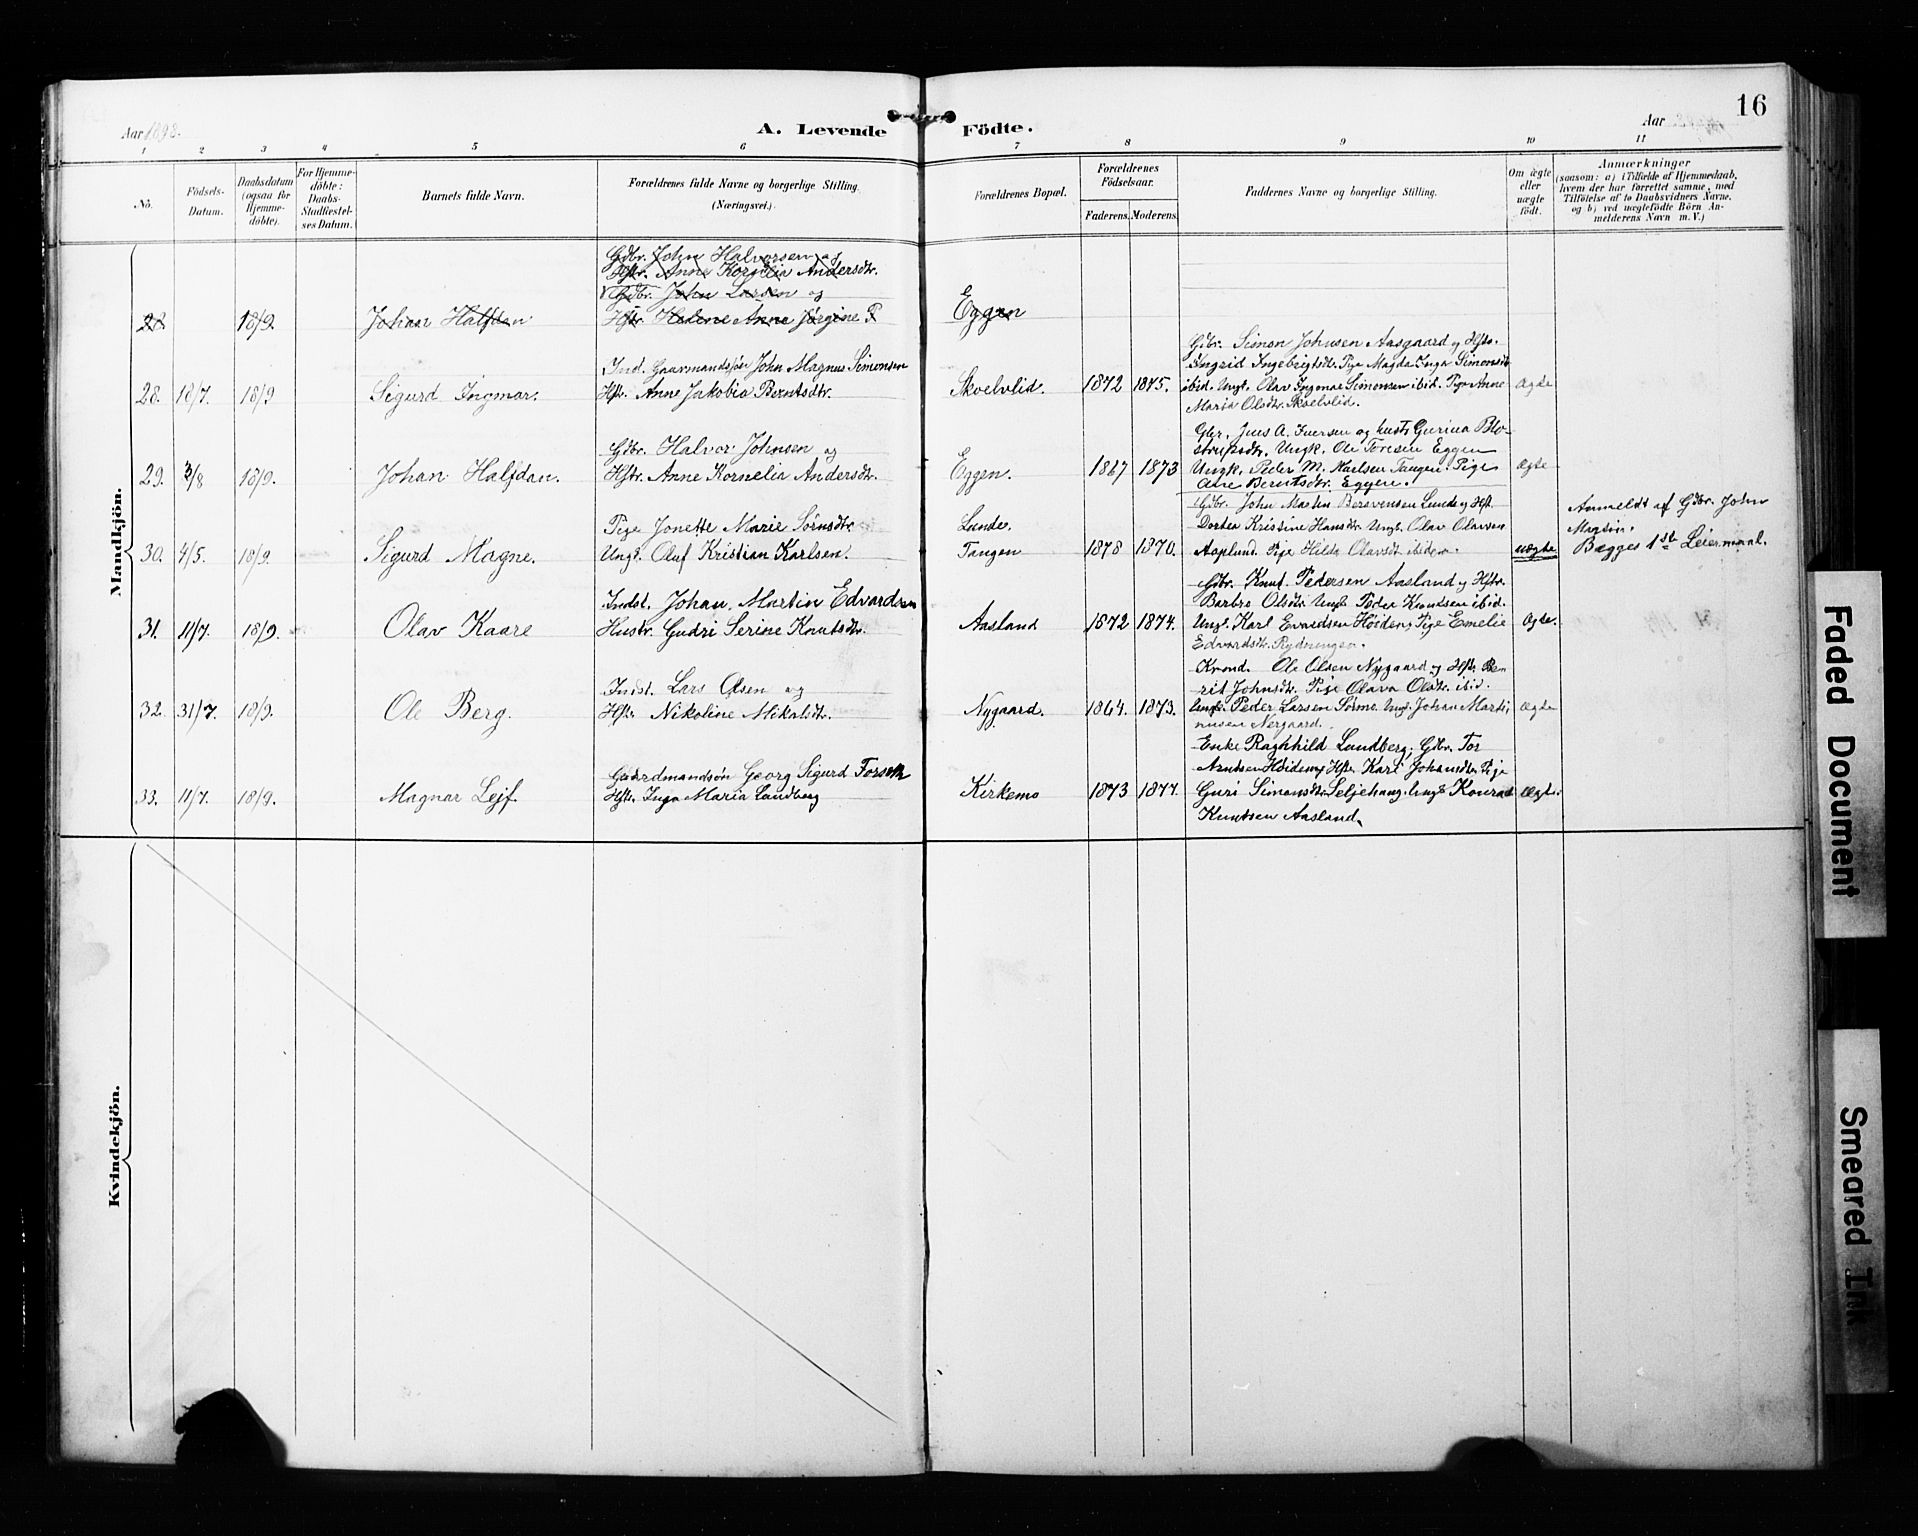 16
Aar 1898.
A. Levende Födte.
Aar
1 2 3 4 5 6 7 8 9 10 11
No.
Födsels-
Datum.
Daabsdatum
(ogsaa for
Hjemme-
døbte).
For Hjemme-
døbte:
Daabs-
Stadfæstel-
ses Datum.
Barnets fulde Navn.
Forældrenes fulde Navne og borgerlige Stilling.
(Næringsvei.)
Forældrenes Bopæl.
Forældrenes
Födselsaar.
Faderens. Moderens.
Faddernes Navne og borgerlige Stilling.
Om ægte
eller
uægte
født.
Anmærkninger
(saasom: a) i Tilfælde af Hjemmedaab,
hvem der har forrettet samme, med
Tilføielse af to Daabsvidners Navne,
og b) ved uægtefødte Börn An-
melderens Navn m. V.)
Mandkjön.
Gdbr. John Halvorsen og
Hstr. Anne Kornelia Andersdtr.
Gdbr. John Larsen og
28 18/9 Johan Halfdan Hstr. Helene Anna Jørgine P Eggen
Ind. Gaardmandssøn John Magnus Simonsen
28. 18/7. 18/9 Sigurd Ingmar. Hstr. Anne Jakobia Berntsdtr. Skoelvlid. 1872 1875.
Gdbr. Simon Johnsen Aasgaard og Hstr.
Ingrid Ingebrigtsdtr. Pige Magda Inga Simonsdtr
ibid. Ungk. Olav Ingmar Simonsen ibid. Pige Anne
Maria Olsdtr. Skoelvlid.
Ægte
Gdbr. Halvor Johnsen og
29. 3/8 18/9. Johan Halfdan. Hstr. Anne Kornelia Andersdtr. Eggen. 1867 1873
Gbr. Jens A. Iversen og hustr Gurina Blo-
strupsdtr. Ungk. Ole Toresen Eggen
Ungk. Peder M. Karlsen Tangen. Pige
Ane Berntsdtr. Eggen.
Ægte
Pige Jonette Marie Sørnsdtr Lunde.
30. 4/5. 18/9. Sigurd Magne. Ungk. Oluf Kristian Karlsen. Tangen 1878 1870.
Gdbr. John Martin Bersvensen Lunde og Hst.
Dortea Kristine Hansdtr. Ungk. Olav Olavsen
Aaplund. Pige Hilda Olavsdt. ibidem.
uægte
Anmeldt af Gdbr. John
Magsön.
Bægges 1ste Leiermaal.
Indst. Johan Martin Edvardsen
31. 11/7. 18/9. Olav Kaare Hustr. Gudri Serine Knutsdtr. Aasland 1872 1874.
Gdbr. Knut Pedersen Aasland og Hstr.
Barbro Olsdtr. Ungk. Peder Knutsen ibid.
Ungk. Karl Evardsen Høiden, Pige Emelie
Edvardsdtr. Rydningen.
Ægte.
Indst. Lars Olsen og
32. 31/7. 18/9. Ole Berg. Hstr. Nikoline Mikalsdtr. Nygaard. 1864. 1873.
Ole Olsen Nygaard og Hstr. Be-
rit Johnsdtr. Pige Olava Olsdtr. ibid.
Ungk. Peder Larsen Sørmo. Ungk. Johan Marti-
nusen Nergaard.
Ægte
Gaardmandsön Georg Sigurd Forseth
33. 11/7. 18/9. Magnar Lejf. Hstr. Inga Maria Lundberg Kirkemo 1873 1877.
Enke Raghhild Lundberg, Gdbr. Tor
Arntsen Høiden og Hstr. Kari Johansdtr. Pige
Guri Simonsdtr. Seljehaug. Ungk. Konrad
Knutsen Aasland.
Ægte.
Kvindekjön.
Faded Document
Smeared Ink